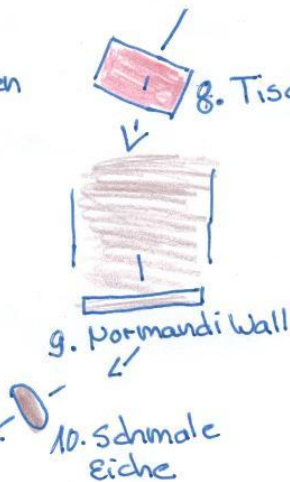 en
8. Tisc
9. Normandi Wall
10. Schmale
Eiche